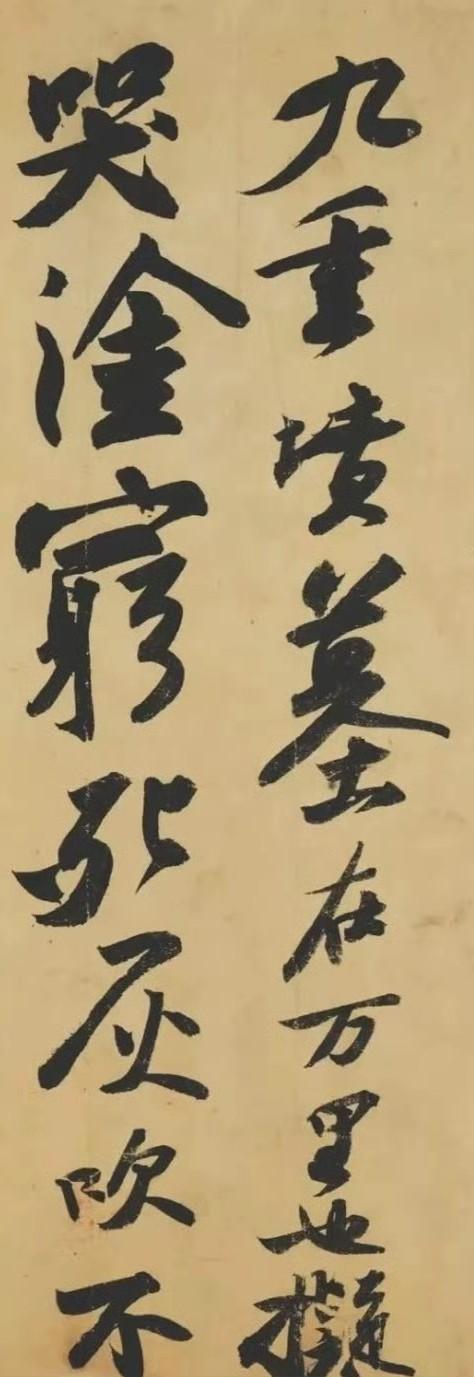 九重墳墓在万里也擬
哭塗窮死灰吹不